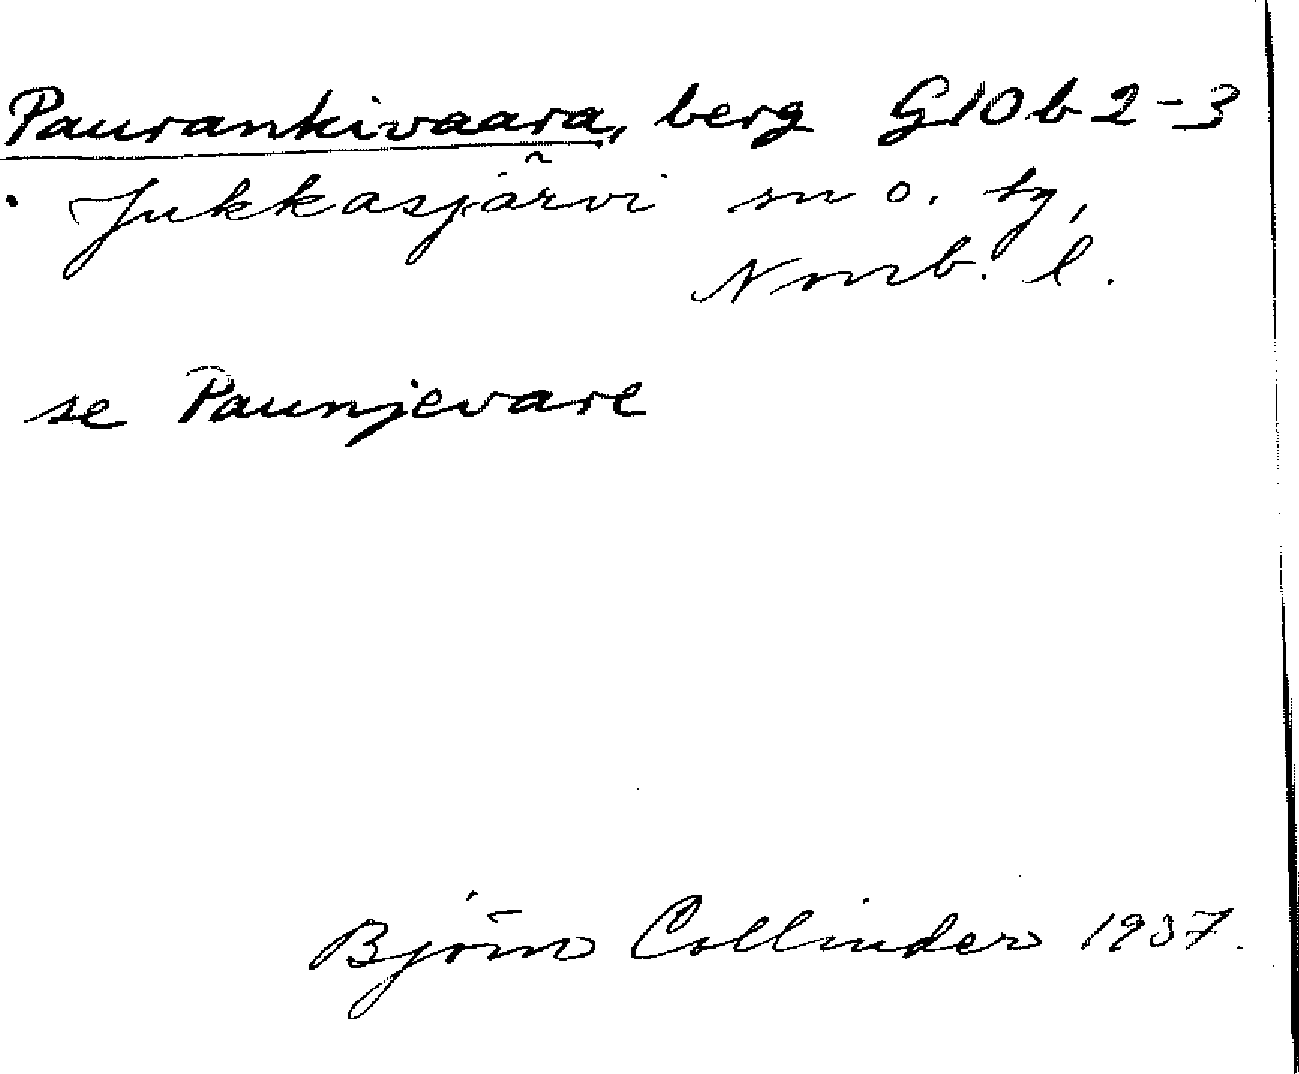 Paurankivaara, berg G10b2-3
Jukkasjärvi sn o. tg,
Norrb. l.
se Paunjevare
Björn Collinder 1937.